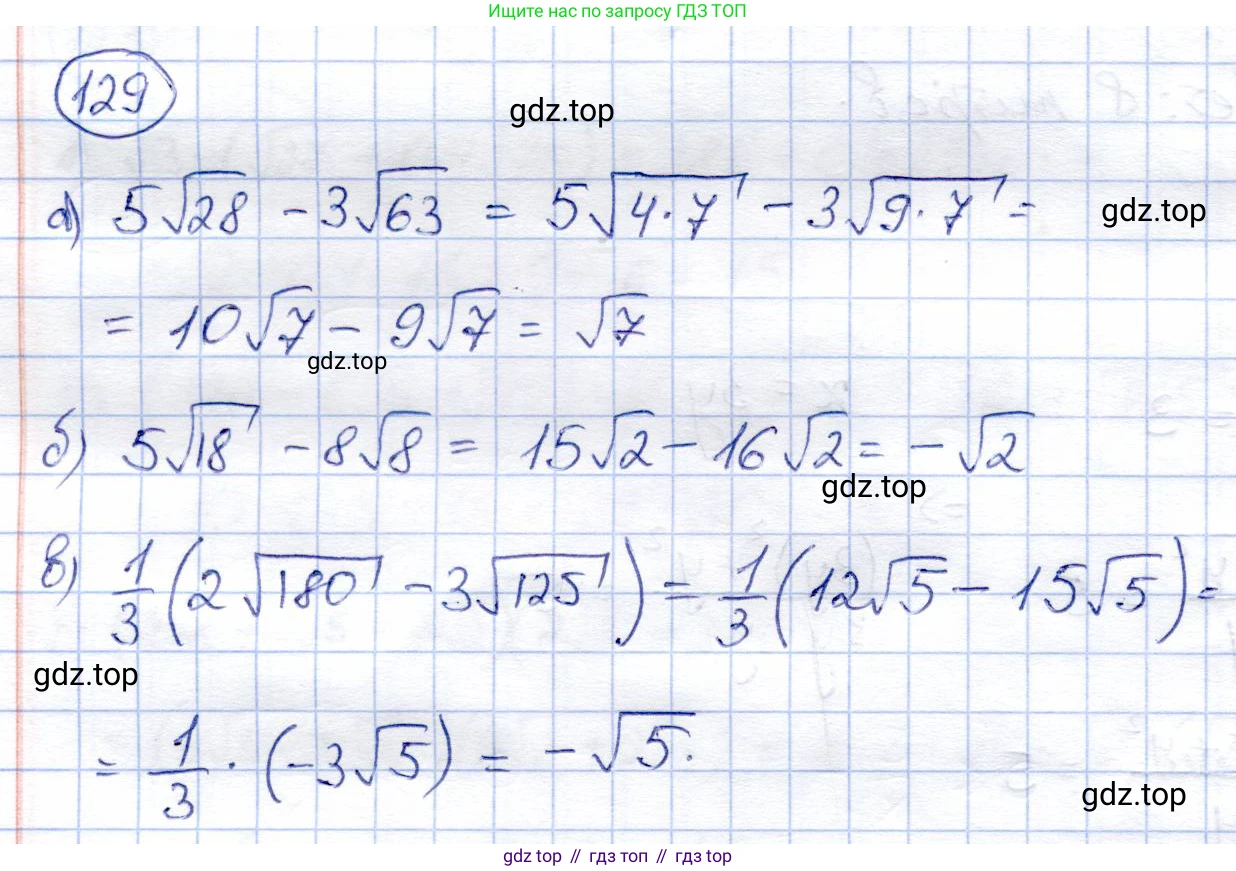 Ищите нас по запросу ГДЗ ТОП
129
gdz.top
а) 5√28 - 3√63 = 5√4·7 - 3√9·7 =
gdz.top
= 10√7 - 9√7 = √7
gdz.top
б) 5√18 - 8√8 = 15√2 - 16√2 = -√2
gdz.top
в) 1/3 (2√180 - 3√125) = 1/3 (12√5 - 15√5) =
gdz.top
= 1/3 · (-3√5) = -√5.
gdz.top
gdz top // гдз топ // гдз top